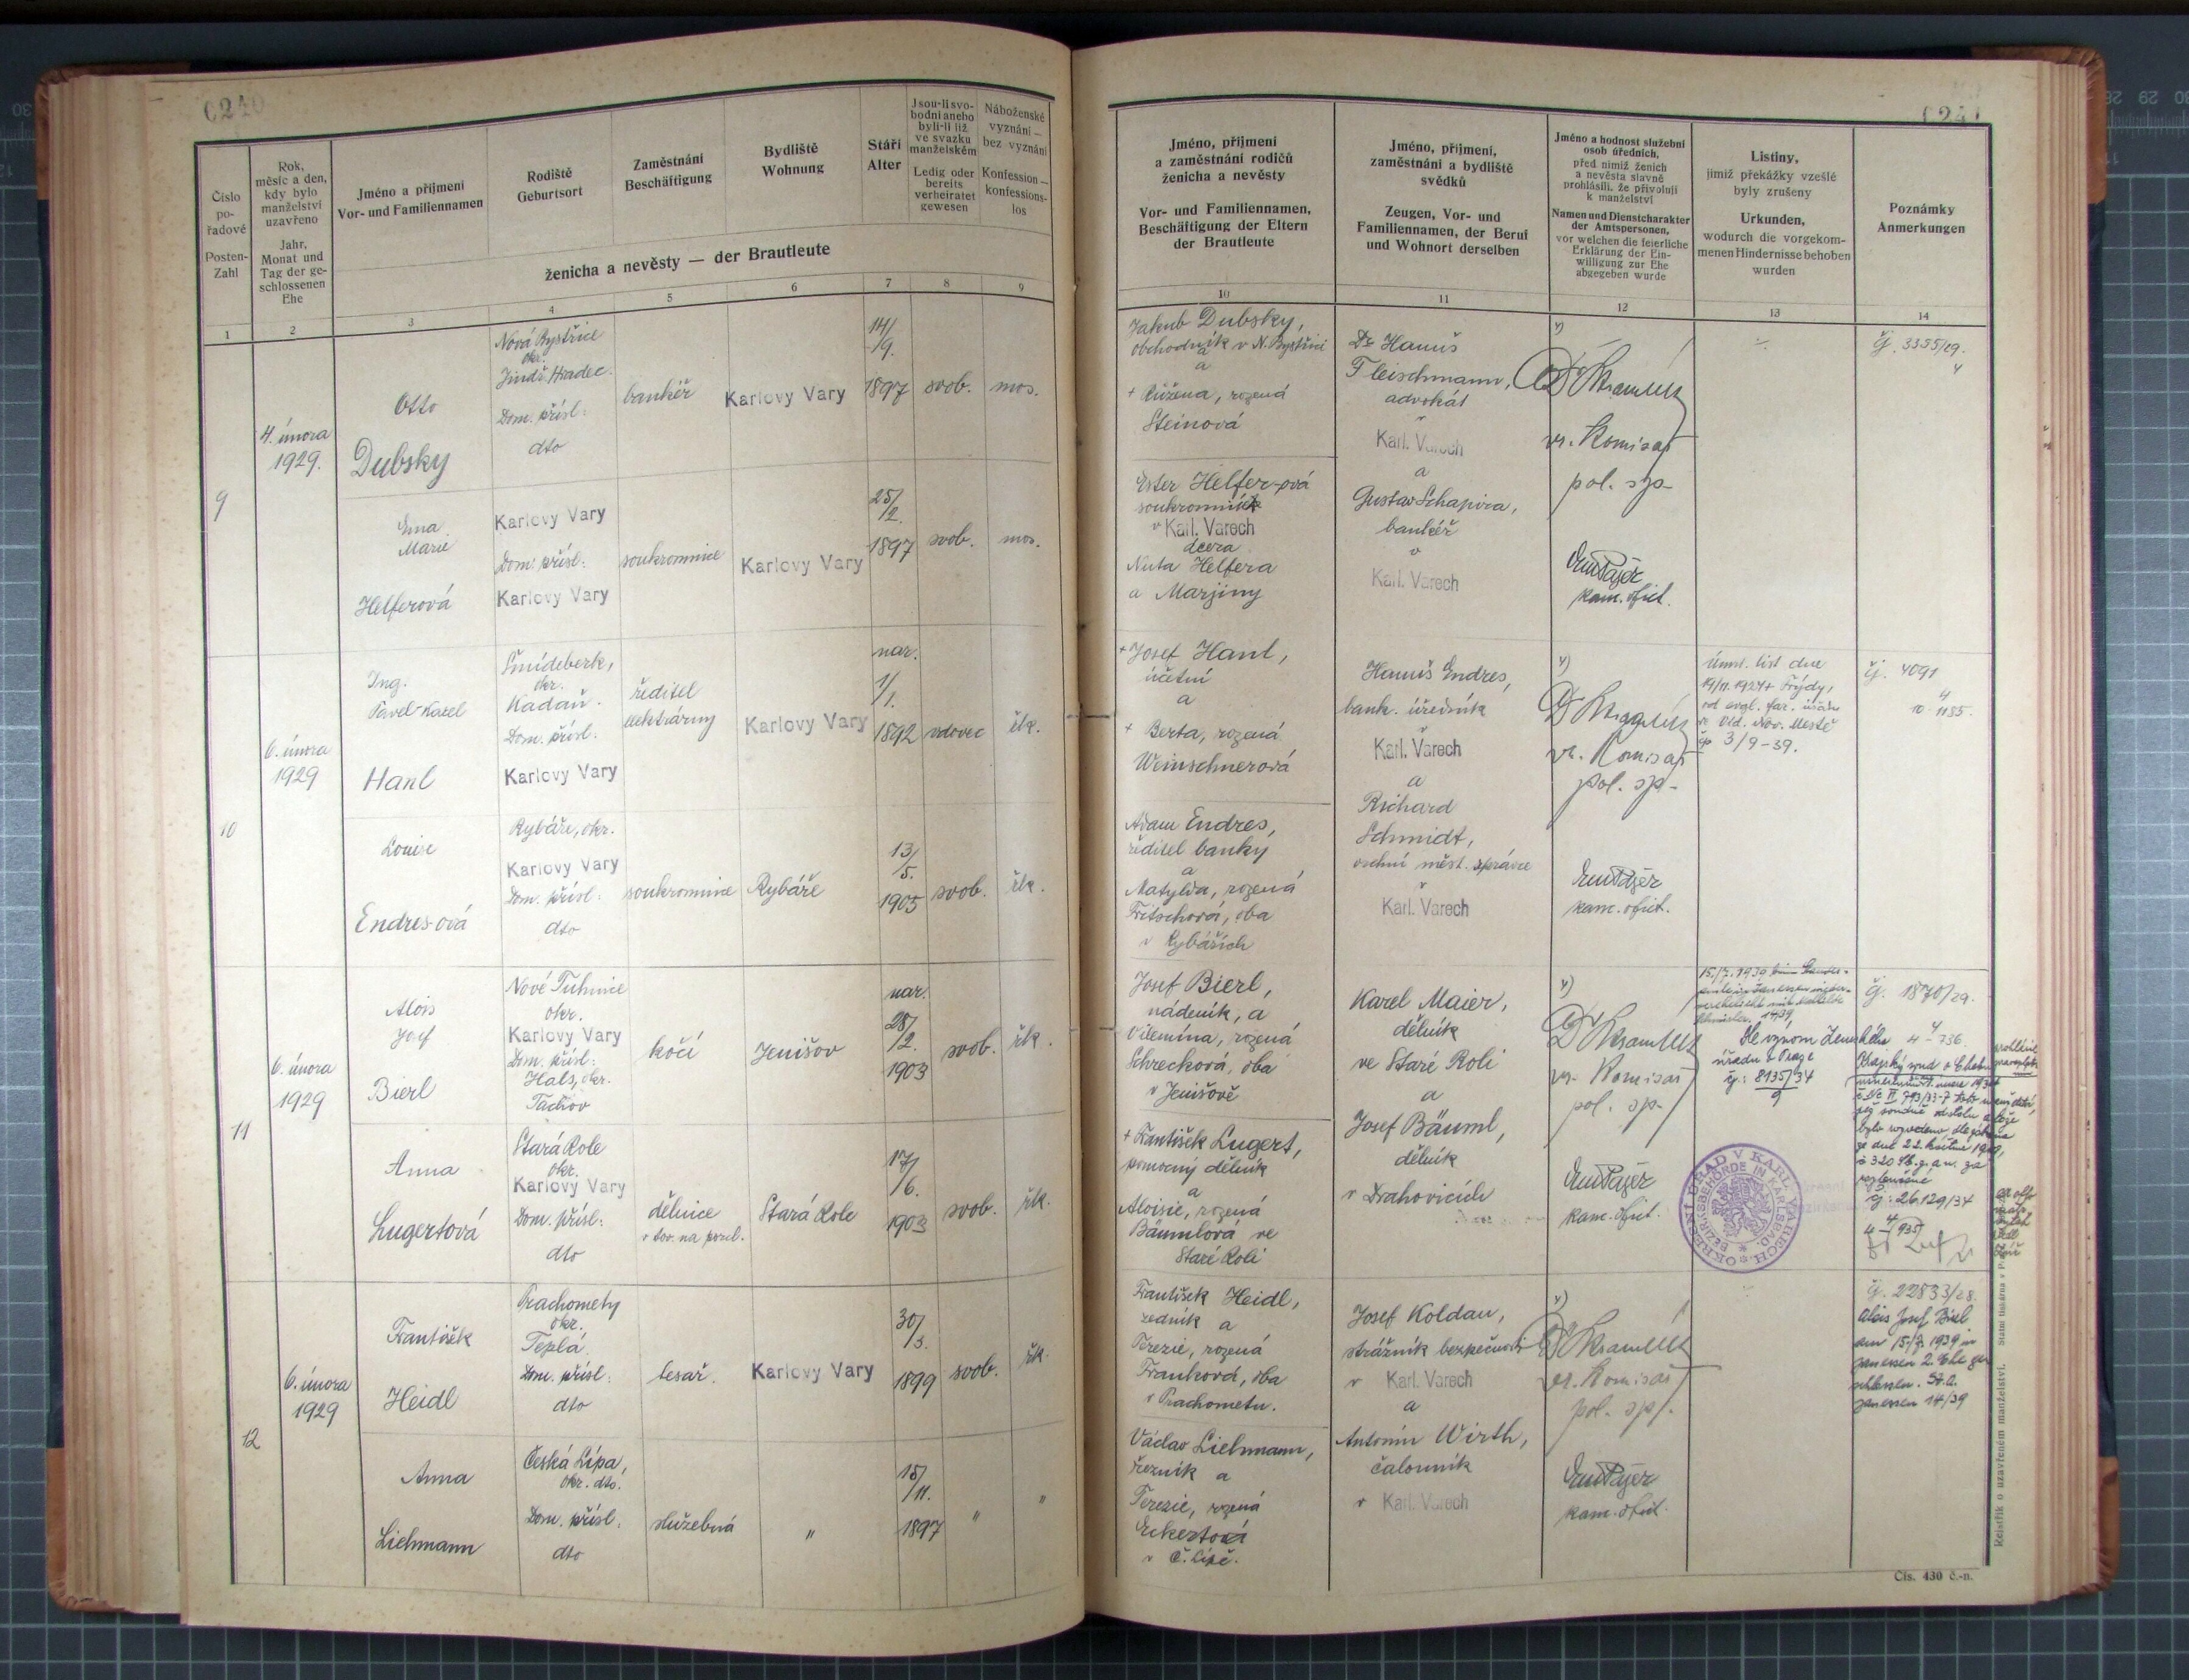 0240
Číslo
po-
řadové
Posten-
Zahl
Rok,
měsíc a den,
kdy bylo
manželství
uzavřeno
Jahr,
Monat und
Tag der ge-
schlossenen
Ehe
Jméno a příjmení
Vor- und Familiennamen
Rodiště
Geburtsort
Zaměstnání
Beschäftigung
Bydliště
Wohnung
Stáří
Alter
Jsou-li svo-
bodni aneb
byli-li již
ve svazku
manželském
Ledig oder
bereits
verheiratet
gewesen
Náboženské
vyznání —
bez vyznání
Konfession —
konfessions-
los
ženicha a nevěsty — der Brautleute
1
2
3
4
5
6
7
8
9
9
4. února
1929.
Otto
Dubsky
Nová Bystřice
okr.
Jindř. Hradec.
Dom. přísl:
dto
bankéř
Karlovy Vary
14/
9.
1897
svob.
mos.
Ema
Marie
Helferová
Karlovy Vary
Dom. přísl:
Karlovy Vary
soukromnice
Karlovy Vary
25/
2.
1897
svob.
mos.
10
6. února
1929
Ing.
Pavel Karel
Hanl
Šmídeberk,
okr.
Kadaň.
Dom. přísl:
Karlovy Vary
ředitel
elektrárny
Karlovy Vary
nar.
1/
1.
1892
vdovec
řk.
Louise
Endres-ová
Rybáře, okr.
Karlovy Vary
Dom. přísl:
dto
soukromnice
Rybáře
13/
5.
1905
svob.
řk.
11
6. února
1929
Alois
Josef
Bierl
Nové Tuhnice
okr.
Karlovy Vary
Dom. přísl:
Hals, okr.
Tachov
kočí
Jenišov
nar.
28/
2.
1903
svob.
řk.
Anna
Lugertová
Stará Role
okr.
Karlovy Vary
Dom. přísl:
dto
dělnice
v tov. na porcl.
Stará Role
17/
6.
1903
svob.
řk.
12
6. února
1929
František
Heidl
Prachomety
okr.
Teplá.
Dom. přísl:
dto
tesař.
Karlovy Vary
30/
3.
1899
svob.
řk.
Anna
Liehmann
Česká Lípa,
okr. dto.
Dom. přísl.
dto
služebná
"
15/
11.
1897
"
"
0241
Jméno, příjmení
a zaměstnání rodičů
ženicha a nevěsty
Vor- und Familiennamen,
Beschäftigung der Eltern
der Brautleute
Jméno, příjmení,
zaměstnání a bydliště
svědků
Zeugen, Vor- und
Familiennamen, der Beruf
und Wohnort derselben
Jméno a hodnost služební
osob úředních,
před nimiž ženich
a nevěsta slavně
prohlásili, že přivolují
k manželství
Namen und Dienstcharakter
der Amtspersonen,
vor welchen die feierliche
Erklärung der Ein-
willigung zur Ehe
abgegeben wurde
Listiny,
jimiž překážky vzešlé
byly zrušeny
Urkunden,
wodurch die vorgekom-
menen Hindernisse behoben
wurden
Poznámky
Anmerkungen
10
11
12
13
14
Jakub Dubsky,
obchodník v N. Bystřici
a
+ Růžena, rozená
Steinová
Ester Helfer-ová
soukromnice
v Karl. Varech
dcera
Nuta Helfera
a Marjiny
Dr. Hanuš
Fleischmann,
advokát
v
Karl. Varech
a
Gustav Schapira,
bankéř
v
Karl. Varech
vr. Komisař
pol. sp-
kanc. ofic.
čj. 3355/29.
4
+ Josef Hanl,
účetní
a
+ Berta, rozená
Weinschnerová
Adam Endres,
ředitel banky
a
Matylda, rozená
Fritschová, oba
v Rybářích
Hanuš Endres,
bank. úředník
v
Karl. Varech
a
Richard
Schmidt,
vrchní měst. správce
v
Karl. Varech
vr. Komisař
pol. sp-
kanc. ofic.
Úmrt. list dne
19/11. 1924 + Frýdy,
od evgl. far. úřadu
ve Víd. Nov. Městě
čp 3/9-39.
čj. 4091
4
Josef Bierl,
nádeník, a
Vilemína, rozená
Schrecková, oba
v Jenišově
+ František Lugert,
pomocný dělník
a
Aloisie, rozená
Bäumlová ve
Staré Roli
Karel Maier,
dělník
ve Staré Roli
a
Josef Bäuml,
dělník
v Drahovicích
vr. Komisař
pol. sp-
kanc. ofic.
15./7. 1939
14/39
Dle výnosu Zemského
úřadu v Praze
čj: 8135/34
9
OKRESNÍ ÚŘAD V KARL. VARECH
BEZIRKSBEHÖRDE IN KARLSBAD.
čj. 1870/29.
Krajský soud v Chebu
bylo rozvedeno
ze dne 22. května 1919,
č 320 Sb. z. a n. za
rozloučené
čj: 26.129/34
František Heidl,
zedník a
Terezie, rozená
Franková, oba
v Prachometu.
Václav Liehmann,
řezník a
Terezie, rozená
Eckertová
v Č. Lípě.
Josef Koldau,
strážník bezpečnosti
v Karl. Varech
a
Antonín Wirth,
čalouník
v Karl. Varech
vr. Komisař
pol. sp-
kanc. ofic.
čj. 22833/28.
Alois Josef Bierl
am 15./7. 1939 in
Janessen 2. Ehe ge-
schlossen. St.A.
Janessen 14/39
Rejstřík o uzavřeném manželství.
Čís. 430 č.-n.